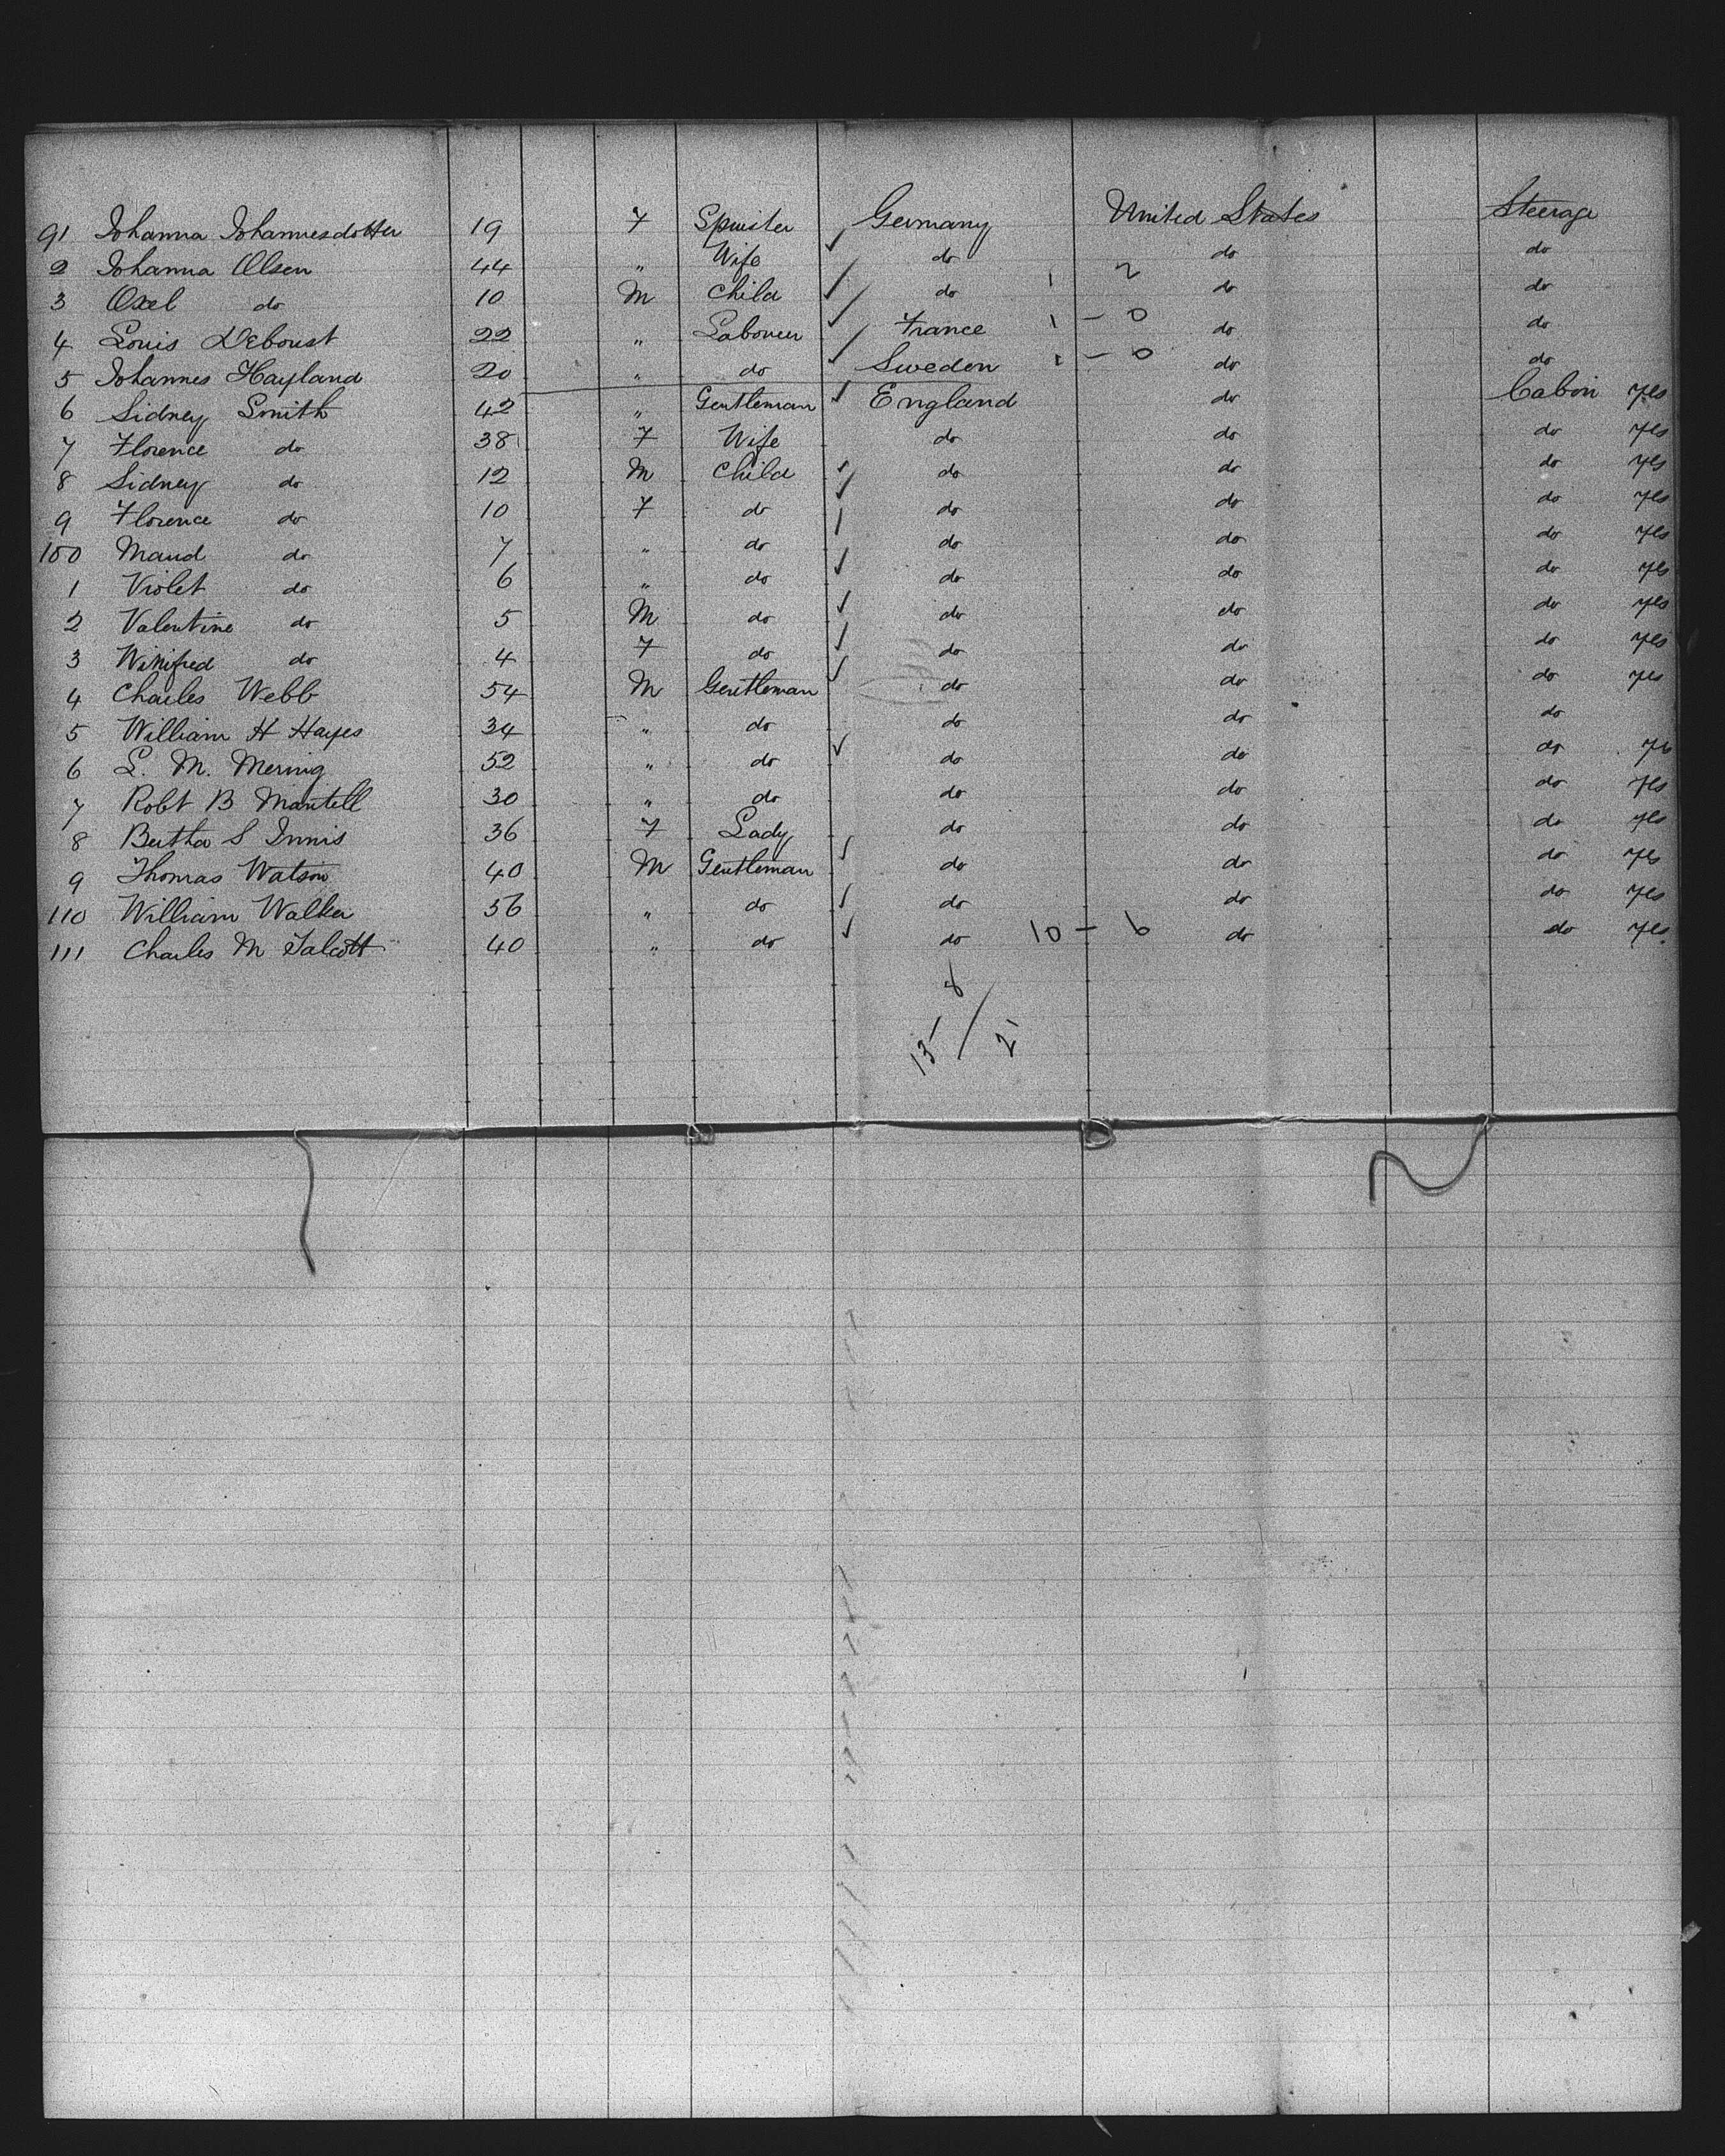 91 Johanna Johannesdotter 19 F Spinster Germany United States Steerage
2 Johanna Olsen 44 " Wife do do do
3 Oxel do 10 M Child do 1 2 do do
4 Louis Deboust 22 " Labourer France 1 - 0 do do
5 Johannes Hayland 20 " do Sweden 1 - 0 do do
6 Sidney Smith 42 " Gentleman England do Cabin yes
7 Florence do 38 F Wife do do do yes
8 Sidney do 12 M Child do do do yes
9 Florence do 10 F do do do do yes
100 Maud do 7 " do do do do yes
1 Violet do 6 " do do do do yes
2 Valentine do 5 M do do do do yes
3 Winifred do 4 F do do do do yes
4 Charles Webb 54 M Gentleman do do do yes
5 William H Hayes 34 " do do do do
6 L. M. Mernig 52 " do do do do yes
7 Robt B Mantell 30 " do do do do yes
8 Bertha S Innis 36 F Lady do do do yes
9 Thomas Watson 40 M Gentleman do do do yes
110 William Walker 56 " do do do do yes
111 Charles M Talcott 40 " do do 10 - 6 do do yes
8
13 / 21